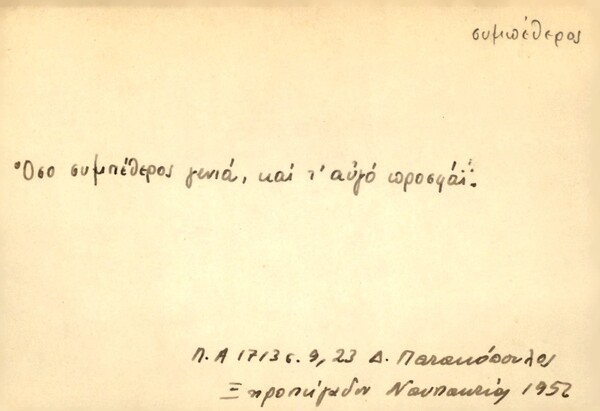 συμπέθερος
Ὅσο συμπέθερος γενιά, καί τ' αὐγό προσφάϊ.
Π.Α 1713 σ. 9, 23 Δ. Παπακόπουλος
Ξηροπήγαδον Ναυπακτίας 1952